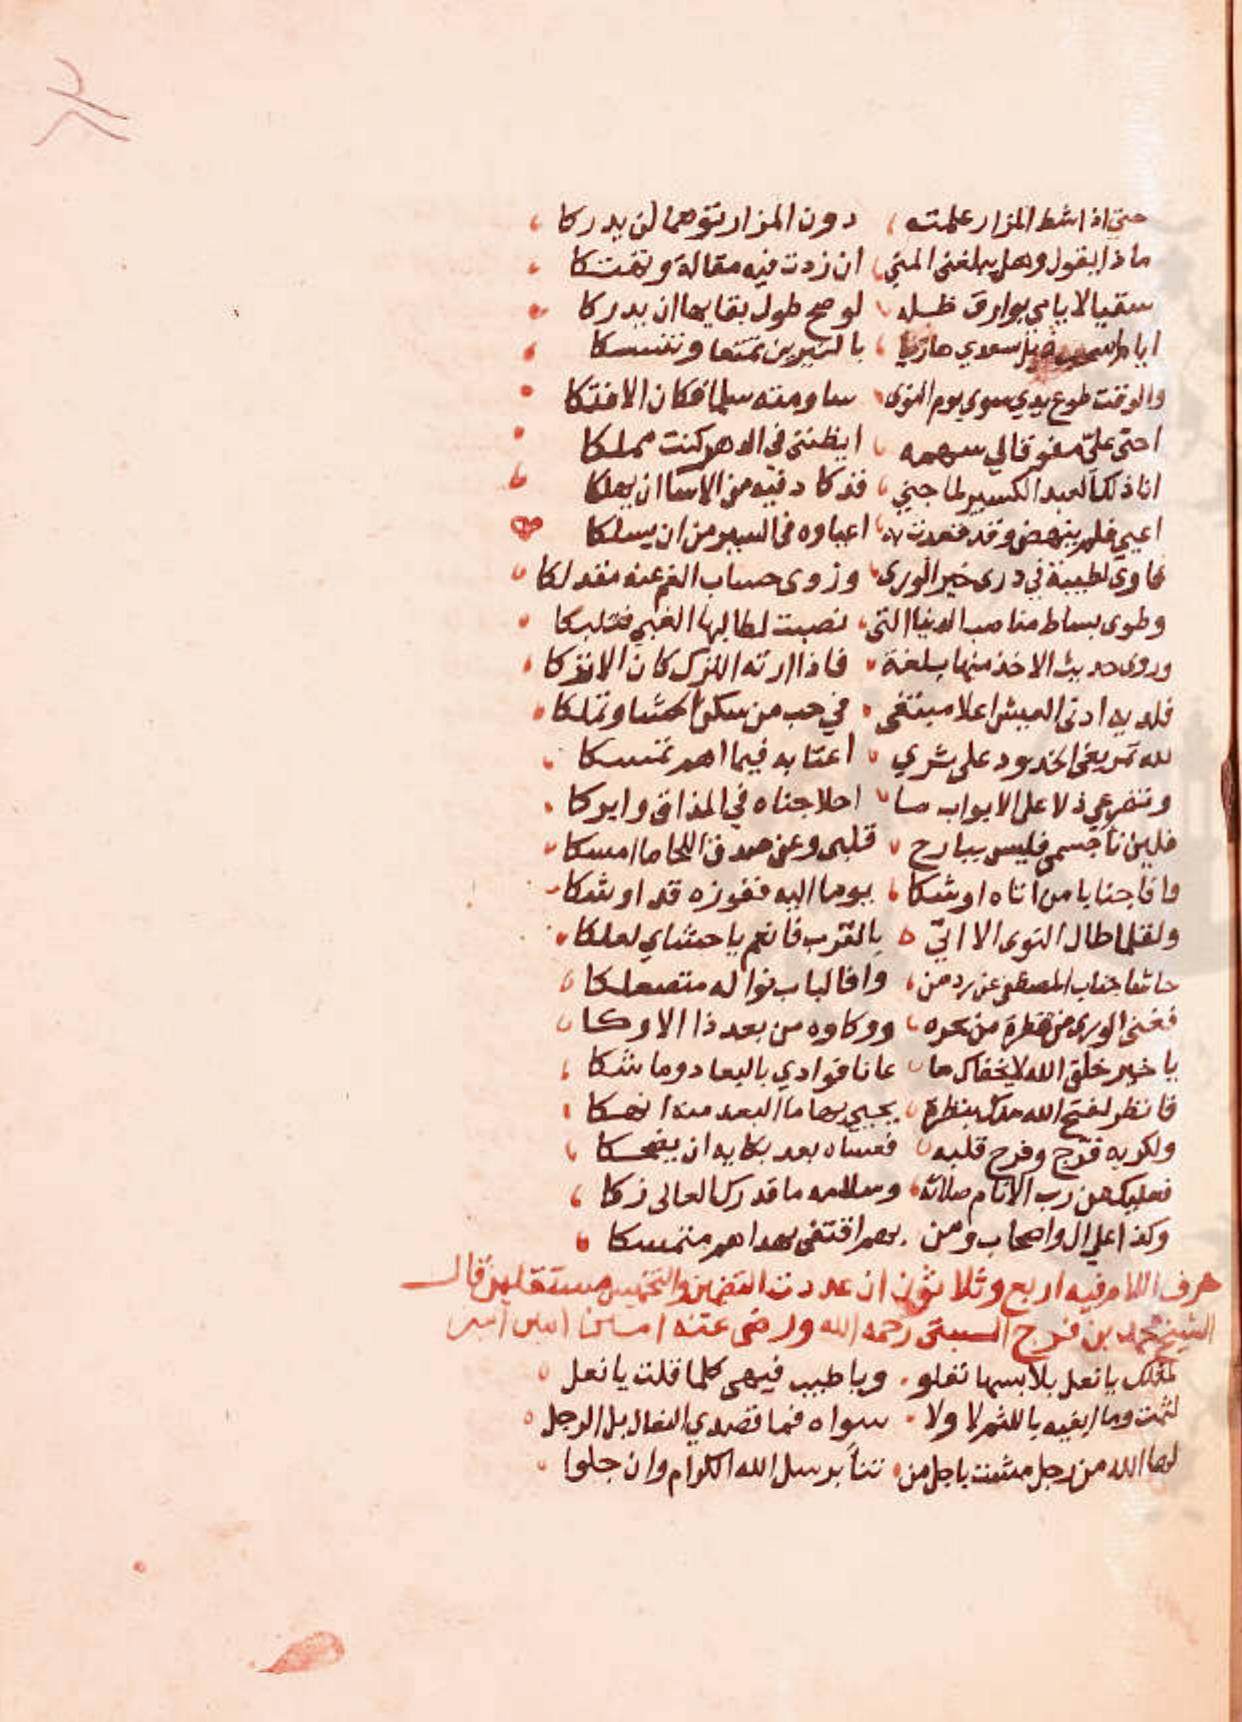 حتى اذا شط المزار علمته دون المزار توهما لن يدركا
ماذا يقول وهل يبلغني المني ان زدت فيه مقالة وتفتكا
سقيا لايامي بوارق ظله لو صح طول بقايها ان يدركا
ايام سعدي
والوقت طوع يدي سوى يوم النوى ساومته سلما فكان الافتكا
احنى علي مفوقا لي سهمه ايظنني في الدهر كنت مملكا
انا ذلك العبد الكسير لما جني قد كاد فيه من الاسا ان يهلكا
اعيي فلم ينهض وقد قعدت به اعباوه في السير من ان يسلكا
فاوى لطيبة في درى خير الورى وزوى حساب الغم عنه مفدلكا
وطوى بساط مناصب الدنيا التي نصبت لطالبها الغبي فتلبكا
وروى حديث الاخذ منها بلغة فاذا ارته الترك كان الاتركا
فلديه ادنى العيش اعلا مبتغى في حب من سكن الحشا وتملكا
لله تمريغي الخدود على ثري اعتابه فيما اهم تمسكا
وتضرعي ذلا على الابواب ما احلا جناه في المذاق وابركا
فلين نأ جسمي فليس ببارح قلبي وعن صدق اللجا ما امسكا
وافا جنابا من اتاه اوشكا يوما اليه ففوزه قد اوشكا
ولقلما طال النوى الا اتى بالقرب فانعم يا حشاي لعلكا
حاشا جناب المصطفى عن رد من وافا لباب نواله متصعلكا
فغنى الورى من قطرة من بحره ووكاوه من بعد ذا الاوكا
يا خير خلق الله لا يخفاك ما عانا فوادي بالبعاد وما شكا
فانظر لفتح الله مدك بنظرة يحيي بها ما البعد منه انهكا
ولكربه فرج وفرح قلبه فعساه بعد بكايه ان يضحكا
فعليك من رب الانام صلاته وسلامه ما قدرك العالى زكا
وكذا على ال واصحاب ومن بهم اقتفى بهداهم متمسكا
حرف اللام وفيه اربع وثلاثون ان عددت التضمين والتخميس مستقلين قال
الشيخ محمد بن فرج السبتى رحمه الله ورضى عنه امين امين امين
لمثلك يا نعل بلابسها تغلو ويا طيب فيهى كلما قلت يا نعل
لثمت وما ابغيه باللثم لا ولا سواه فما قصدي النعال بل الرجل
لها الله من رجل مشت باجل من تنأ برسل الله الكرام وان جلوا